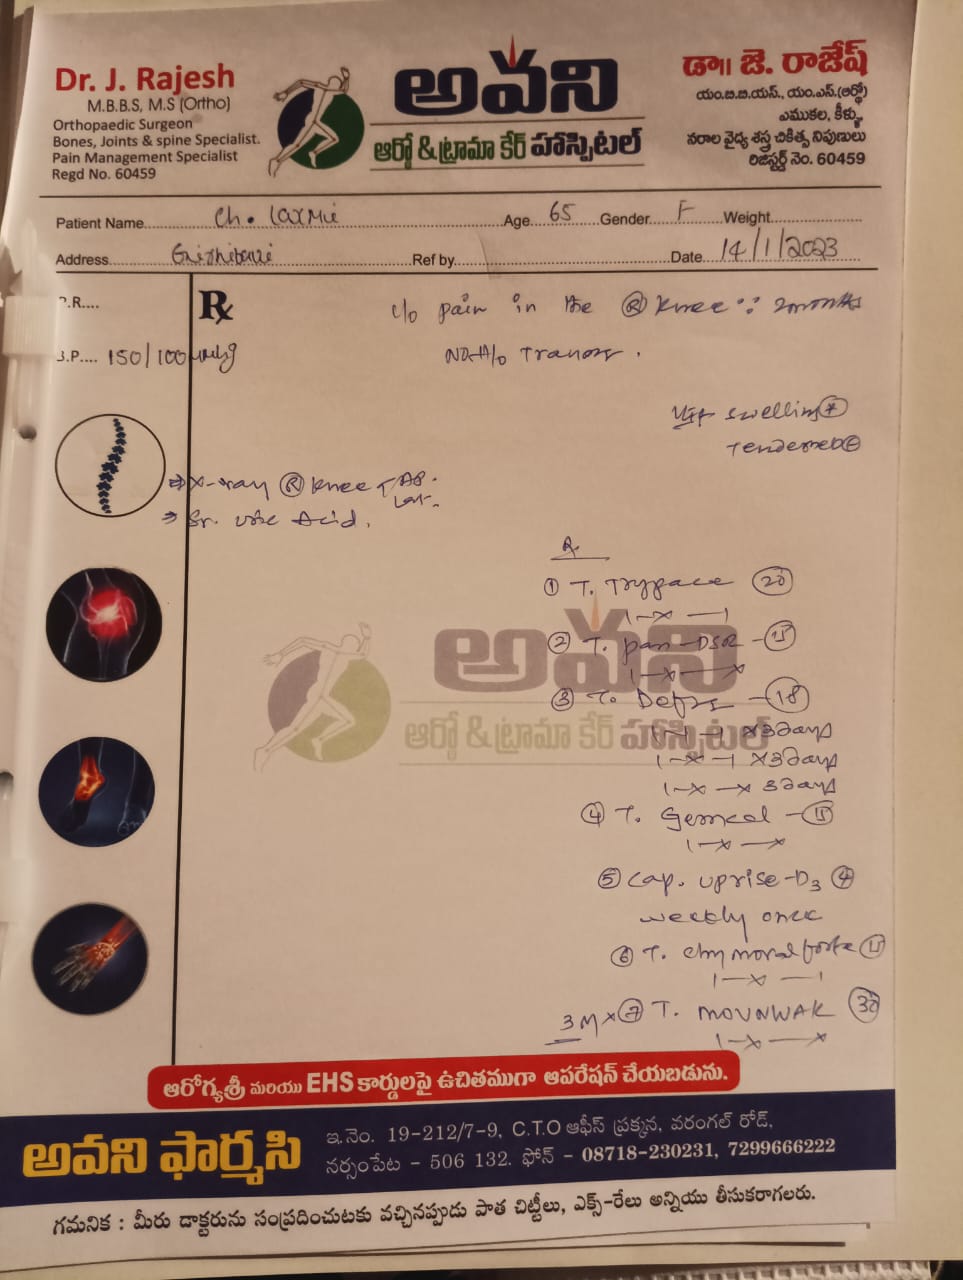 Dr. J. Rajesh
M.B.B.S, M.S (Ortho)
Orthopaedic Surgeon
Bones, Joints & spine Specialist.
Pain Management Specialist
Regd No. 60459
అవని
ఆర్థో & ట్రామా కేర్ హాస్పిటల్
డా॥ జె. రాజేష్
యం.బి.బి.యస్., యం.ఎస్.(ఆర్థో)
ఎముకల, కీళ్ళు
నరాల వైద్య శస్త్ర చికిత్స నిపుణులు
రిజిస్టర్డ్ నెం. 60459
Patient Name Ch. Laxmi Age 65 Gender F Weight
Address Ref by Date 14/1/2023
P.R....
Rx
c/o pain in the (R) knee 2months
B.P.... 150/100 mmHg
No H/o Trauma.
swelling
Tenderness
X-ray (R) knee AP. Lat.
Sr. Uric Acid.
① T. Trypace 20
1-x-1
② T. Pan-DSR - 15
1-x-x
③ T. - 18
1-1-1 x3days
1-x-1 x3days
1-x-x 3days
④ T. Gemcal - 15
1-x-x
⑤ Cap. uprise-D3 4
weekly once
⑥ T. chymoral forte 15
1-x-1
3M x ⑦ T. MOVNWAK 30
1-x-x
అవని
ఆర్థో & ట్రామా కేర్ హాస్పిటల్
ఆరోగ్యశ్రీ మరియు EHS కార్డులపై ఉచితముగా ఆపరేషన్ చేయబడును.
అవని ఫార్మసి
ఇ.నెం. 19-212/7-9, C.T.O ఆఫీస్ ప్రక్కన, వరంగల్ రోడ్,
నర్సంపేట - 506 132. ఫోన్ - 08718-230231, 7299666222
గమనిక : మీరు డాక్టరును సంప్రదించుటకు వచ్చినప్పుడు పాత చిట్టీలు, ఎక్స్-రేలు అన్నియు తీసుకరాగలరు.